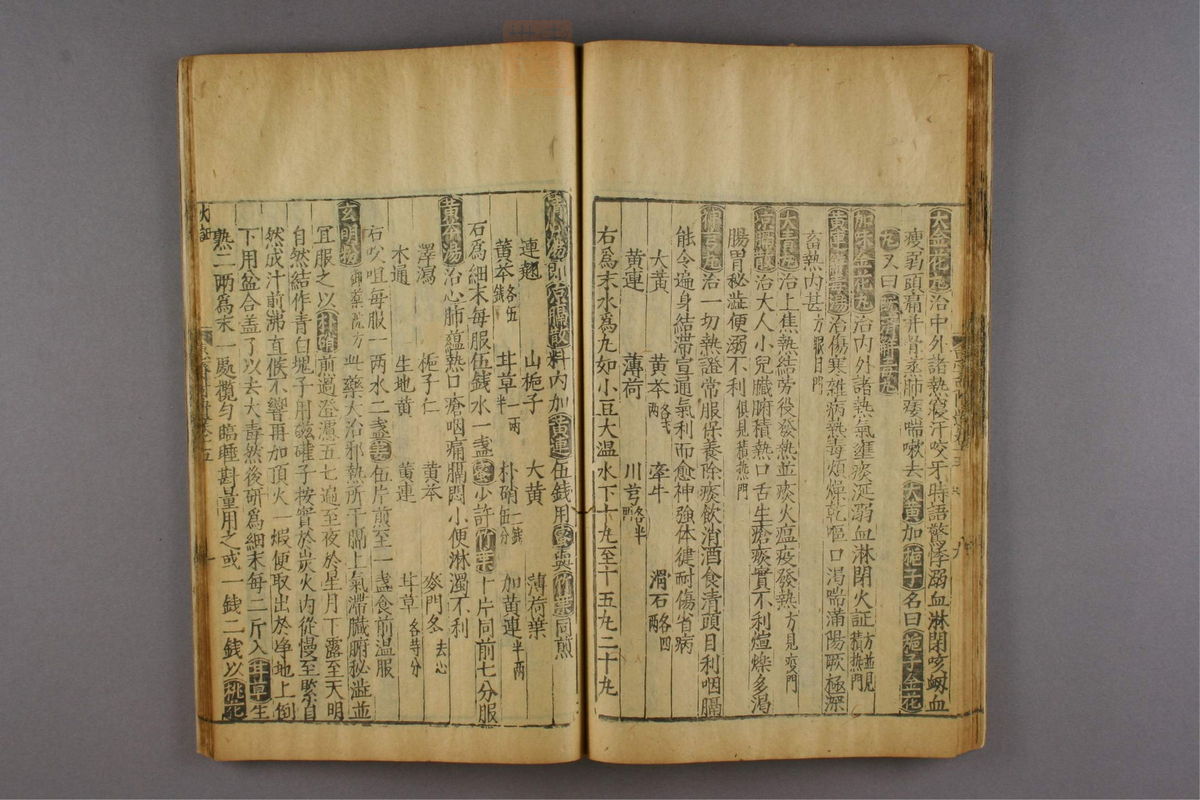 大金花丸治中外諸熱寢汗咬牙時語驚悸溺血淋閉咳衂血
瘦弱頭痛并骨蒸肺痿喘嗽去大黄加梔子名曰梔子金花
丸又曰既濟解毒丸
加味金花丸治内外諸熱氣壅痰涎溺血淋閉火証方並見積熱門
黄連解毒湯治傷寒雜病熱毒煩燥乾嘔口渴喘滿陽厥極深
畜熱内甚方眼目門
大青丸治上焦熱結勞役發熱並痰火瘟疫發熱方見瘟門
凉膈散治大人小兒臟腑積熱口舌生瘡痰實不利煩燥多渴
腸胃秘澁便溺不利俱見積熱門
神芎丸治一切熱證常服保養除痰飲消酒食清頭目利咽膈
能令遍身結滯宣通氣利而愈神強体健耐傷省病
大黄 黄芩各弍兩 牽牛 滑石各四兩
黄連 薄荷 川芎各半兩
右爲末水爲丸如小豆大温水下十丸至十五丸二十丸
清心湯即凉膈散料内加黄連伍錢用蜜與竹葉同煎
連翹 山梔子 大黄 薄荷葉
黄芩各伍錢 甘草一兩半 朴硝二錢伍分 加黄連半兩
右爲細末每服伍錢水一盞蜜少許竹葉十片同前七分服
黄芩湯治心肺蘊熱口瘡咽痛膈悶小便淋濁不利
澤瀉 梔子仁 黄芩 麥門冬去心
木通 生地黄 黄連 甘草各等分
右㕮咀每服一兩水二盞姜伍片煎至一盞食前温服
玄明粉御藥院方此藥大治邪熱所干膈上氣滯臟腑秘澁並
宜服之以朴硝煎過澄濾五七遍至夜於星月下露至天明
自然結作青白塊子用磁確子按實於炭火内從慢至緊自
然成汁煎沸直候不響再加頂火一煅便取出於净地上倒
下用盆合盖了以去火毒然後研爲細末每二斤入甘草生
熟二兩爲末一處攪匀臨睡斟量用之或一錢二錢以桃花
火証